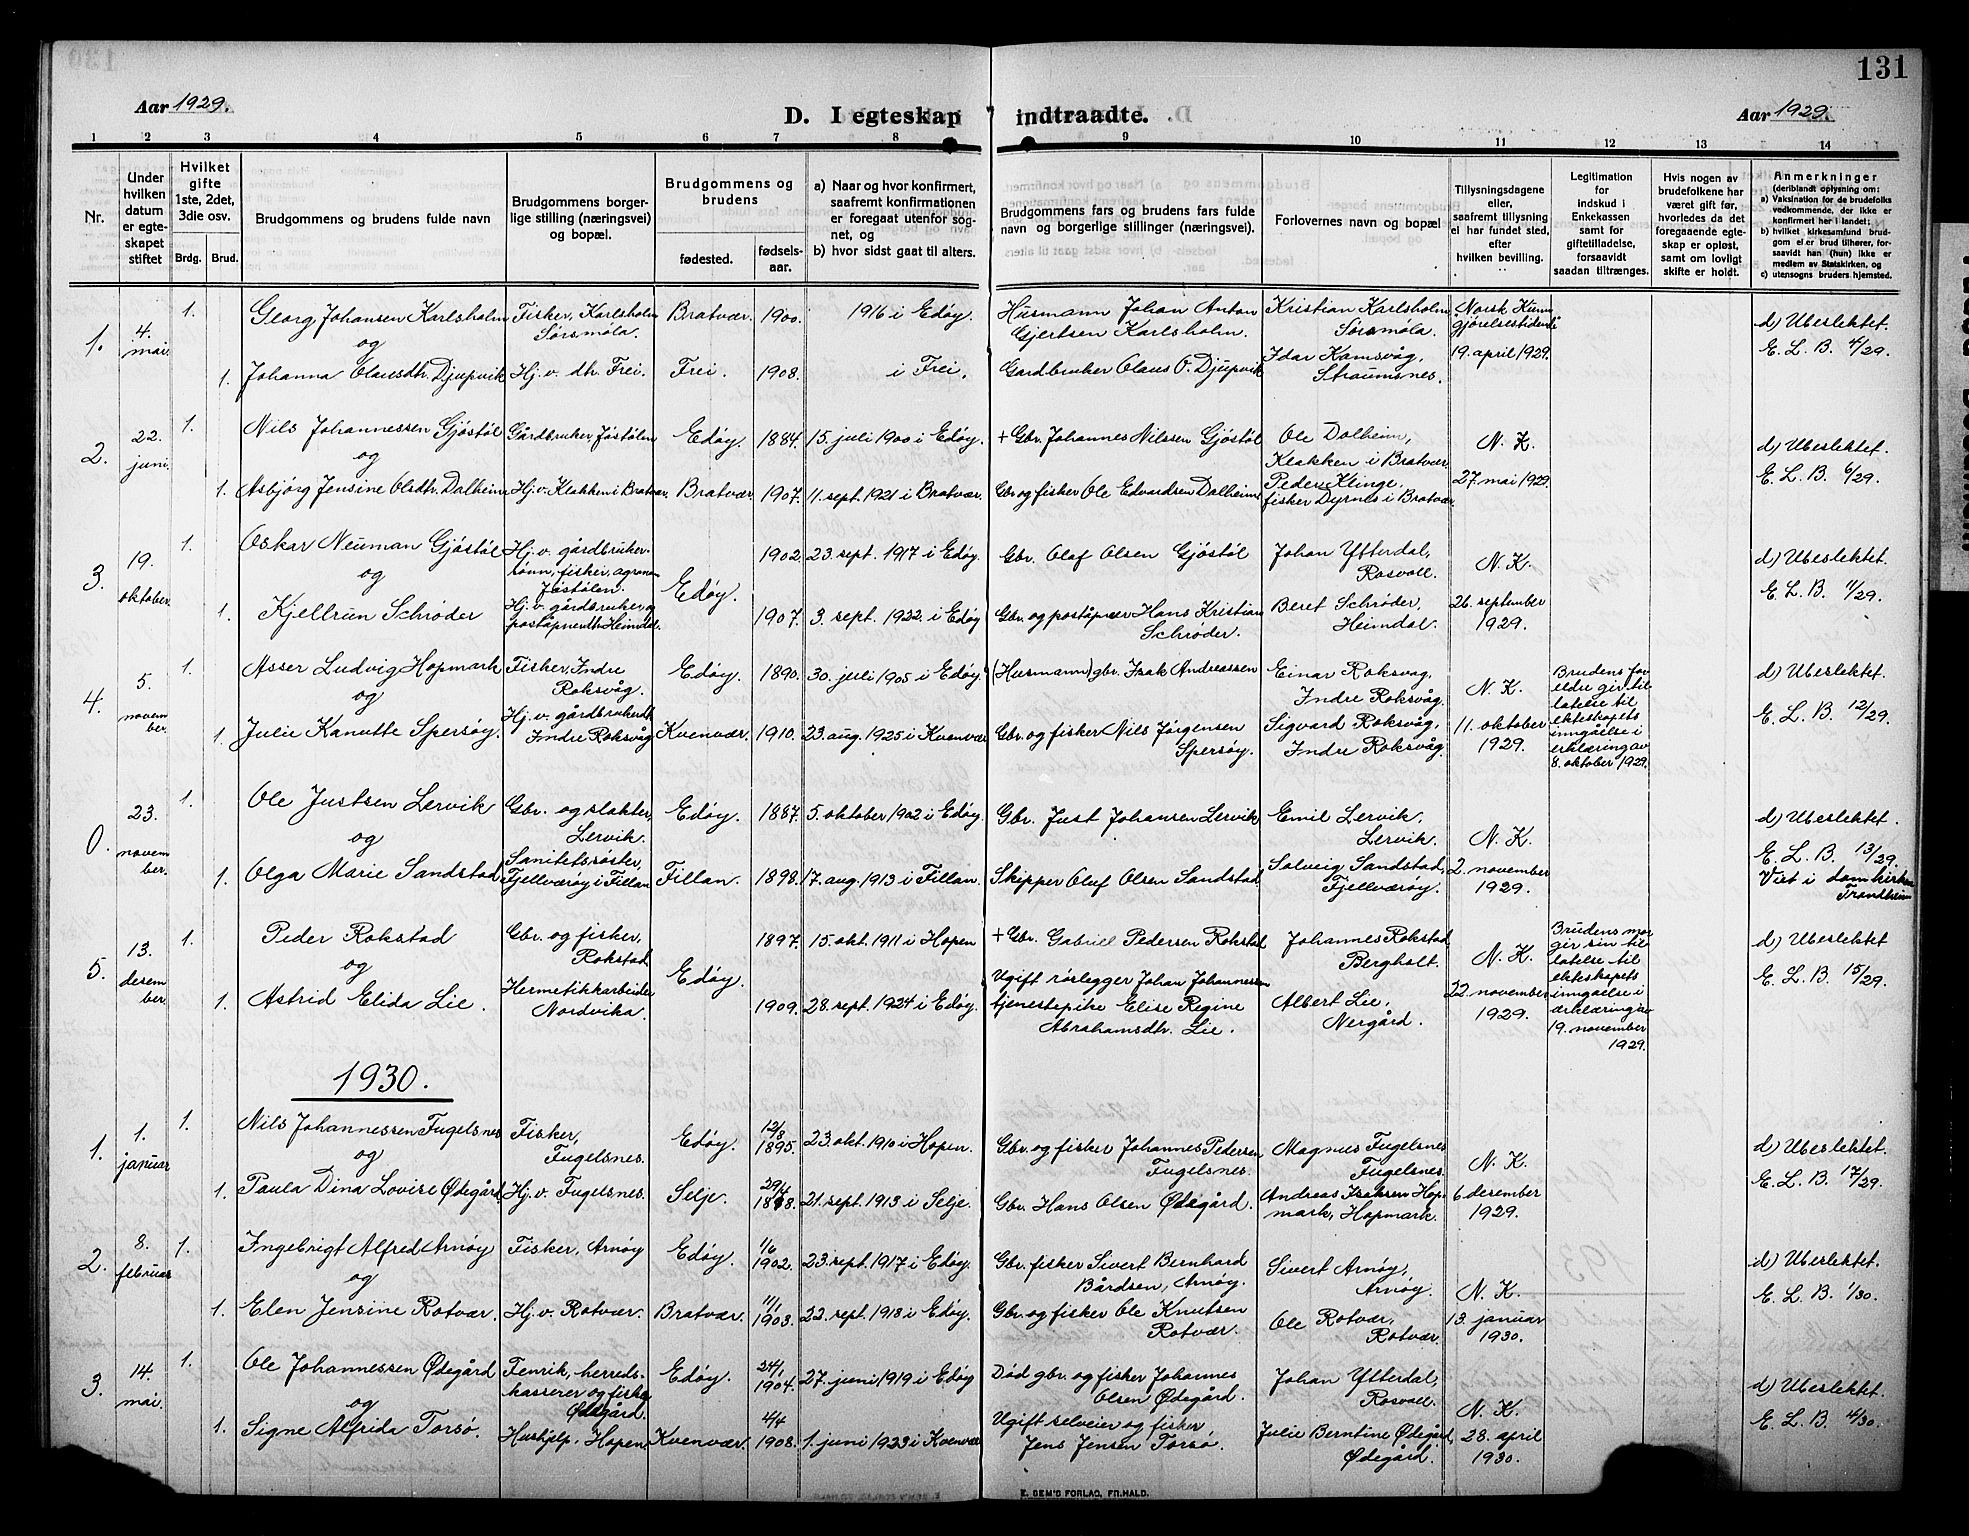 131
Aar 1929.
D. I egteskap indtraadte.
Aar 1929.
1 2 3 4 5 6 7 8 9 10 11 12 13 14
Nr.
Under hvilken datum er egteskapet stiftet
Hvilket gifte 1ste, 2det, 3die osv.
Brdg. Brud.
Brudgommens og brudens fulde navn
Brudgommens borgerlige stilling (næringsvei) og bopæl.
Brudgommens og brudens
fødested. fødselsaar.
a) Naar og hvor konfirmert, saafremt konfirmationen er foregaat utenfor sognet, og
b) hvor sidst gaat til alters.
Brudgommens fars og brudens fars fulde navn og borgerlige stillinger (næringsvei).
Forlovernes navn og bopæl
Tillysningsdagene eller, saafremt tillysning ei har fundet sted, efter hvilken bevilling.
Legitimation for indskud i Enkekassen samt for giftetilladelse, forsaavidt saadan tiltrænges.
Hvis nogen av brudefolkene har været gift før, hvorledes da det foregaaende egteskap er opløst, samt om lovligt skifte er holdt.
Anmerkninger (deriblandt oplysning om:
a) Vaksination for de brudefolks vedkommende, der ikke er konfirmert her i landet;
b) hvilket kirkesamfund brudgom el er brud tilhører, forsaavidt han (hun) ikke er medlem av Statskirken, og
c) utensogns bruders hjemsted.
1. 4. mai 1. Georg Johansen Karlsholm Fisker, Karlsholm Sørsmøla. Bratvær. 1900. 1916 i Edøy. Husmann Johan Anton Gjertsen Karlsholm. Kristian Karlsholm Sørsmøla. Norsk Kunngjørelsestidende 19. april 1929. d) Ubeslektet. E. L. B. 4/29.
og
1. Johanna Olausdtr. Djupvik Hj. v. dtr. Frei. Frei. 1908. i Frei. Gardbruker Olaus O. Djupvik Idar Kamsvåg, Straumsnes.
2. 22. juni. 1. Nils Johannessen Gjøstøl Gårdbruker Jøstølen Edøy. 1884. 15. juli 1900 i Edøy. + Gbr. Johannes Nilssen Gjøstøl Ole Dalheim, Klakken i Bratvær N. K. 27. mai 1929. d) Ubeslektet. E. L. B. 6/29.
og
1. Asbjørg Jensine Olsdtr. Dalheim Hj. v. Klakken i Bratvær. Bratvær. 1907. 11. sept. 1921 i Bratvær. Gbr. og fisker Ole Edvardsen Dalheim Peder Klinge, fisker Dyrnes i Bratvær
3. 19. oktober. 1. Oskar Neuman Gjøstøl Hj. v. gårdbrukersønn, fisker, agronom Jøstølen. Edøy. 1902. 23. sept. 1917 i Edøy. Gbr. Olaf Olsen Gjøstøl Johan Ytterdal, Rosvoll. N. K. 26. september 1929. d) Ubeslektet. E. L. B. 11/29.
og
1. Kjellrun Schrøder Hj. v. gårdbruker og poståpnerdtr. Heimdal. 1907. 3. sept. 1922. i Edøy Gbr. og poståpner Hans Kristian Schrøder. Beret Schrøder, Heimdal.
4. 5. november. 1. Asser Ludvig Hopmark Fisker, Indre Roksvåg. Edøy. 1890. 30. juli 1905 i Edøy (Husmann) gbr. Isak Andreassen Einar Roksvag, Indre Roksvåg. N. K. 11. oktober 1929. Brudens foreldre gir tillatelse til ekteskapets inngåelse i erklæring av 8. oktober 1929. d) Ubeslektet. E. L. B. 12/29.
og
1. Julie Kanutte Spersøy. Hj. v. gårdbrukerdtr. Indre Roksvåg Kvenvær. 1910. 23. aug. 1925 i Kvenvær Gbr. og fisker Nils Jørgensen Spersøy. Sigvard Roksvåg, Indre Roksvåg.
0. 23. november. 1. Ole Justsen Lervik Gbr. og slakter, Lervik. Edøy. 1887. 5. oktober 1902 i Edøy. Gbr. Just Johansen Lervik Emil Lervik, Lervik. N. K. 2. november 1929. d) Ubeslektet. E. L. B. 13/29. Viet i domkirken Trondheim
og
1. Olga Marie Sandstad Sanitetssøster, Fjellværøy i Fillan Fillan. 1898. 17. aug. 1913 i Fillan. Skipper Oluf Olsen Sandstad Solveig Sandstad, Fjellværøy.
5. 13. desember. 1. Peder Rokstad Gbr. og fisker, Rokstad Edøy. 1897. 15. okt. 1911 i Hopen + Gbr. Gabriel Pedersen Rokstad Johannes Rokstad Bergholt. N. K. 22. november 1929. Brudens mor gir sin tillatelse til ekteskapets inngåelse i erklæring av 19. november 1929. d) Ubeslektet E. L. B. 15/29.
og
1. Astrid Elida Lie. Hermetikkarbeider Nordvika. 1909. 28. sept. 1924 i Edøy. Ugift rørlegger Johan Johannessen tjenestepike Elise Regine Abrahamsdtr. Lie. Albert Lie, Nergård.
1930.
1. 1. januar 1. Nils Johannessen Fugelsnes Fisker, Fugelsnes. Edøy. 12/8 1895. 23. okt. 1910 i Hopen. Gbr. og fisker Johannes Pedersen Fugelsnes. Magnus Fugelsnes Fugelsnes N. K. 6 desember 1929. d) Ubeslektet. E. L. B. 17/29.
og
1. Paula Dina Lovise Ødegård Hj. v. Fugelsnes. Selje. 1898. 21. sept. 1913 i Selje. Gbr. Hans Olsen Ødegård. Andreas Isaksen Hopmark, Hopmark.
2. 8. februar 1. Ingebrigt Alfred Arnøy Fisker, Arnøy Edøy. 1/6 1902. 23. sept. 1917 i Edøy. Gbr. fisker Sivert Bernhard Bårdsen, Arnøy. Sivert Arnøy, Arnøy. N. K. 13. januar 1930. d) Ubeslektet. E. L. B. 1/30.
og
1. Elen Jensine Rotvær. Hj. v. Rotvær. Bratvær. 11/1 1903. 22. sept. 1918 i Edøy. Gbr. og fisker Ole Knutsen Rotvær. Ole Rotvær, Rotvær.
3. 14. mai. 1. Ole Johannessen Ødegård Fenrik, herredskasserer og fisker Ødegård. Edøy. 24/1 1904. 27. juni 1919 i Edøy Død gbr. og fisker Johannes Olsen Ødegård. Johan Ytterdal, Rosvoll. N. K. 28. april 1930. d) Ubeslektet. E. L. B. 4/30.
og
1. Signe Alfrida Torsø. Hushjelp, Hopen Kvenvær. 4/4 1908. 1. juni 1923 i Kvenvær Ugift selveier og fisker Jens Jensen Torsø. Julie Berntine Ødegård, Ødegård.
E. SEM'S FORLAG, FR.HALD.